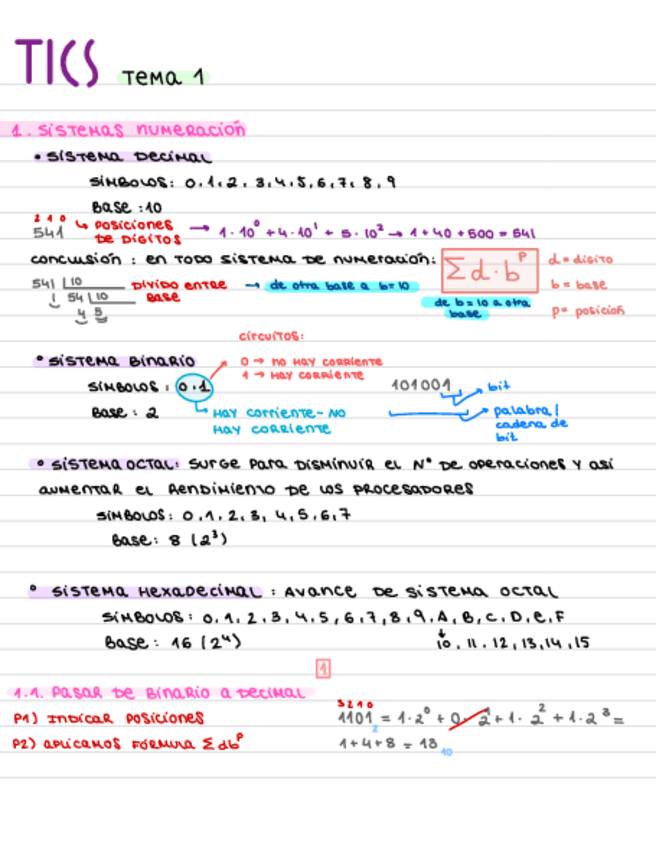 TICS TEMA 1
1. SISTEMAS NUMERACIÓN
• SISTEMA DECIMAL
SÍMBOLOS: 0, 1, 2, 3, 4, 5, 6, 7, 8, 9
BASE: 10
2 1 0
541 ↳ POSICIONES DE DÍGITOS → 1·10⁰ + 4·10¹ + 5·10² → 1 + 40 + 500 = 541
CONCLUSIÓN: EN TODO SISTEMA DE NUMERACIÓN: Σd·b^P
d = dígito
b = base
p = posición
541 |10
1 54 |10
4 5
DIVIDO ENTRE BASE → de otra base a b=10
de b=10 a otra base
CIRCUITOS:
0 → NO HAY CORRIENTE
1 → HAY CORRIENTE
• SISTEMA BINARIO
SÍMBOLOS: 0.1
BASE: 2
↳ HAY CORRIENTE-NO
HAY CORRIENTE
101001 → bit
palabra/
cadena de
bit
• SISTEMA OCTAL: SURGE PARA DISMINUIR EL Nº DE OPERACIONES Y ASÍ
AUMENTAR EL RENDIMIENTO DE LOS PROCESADORES
SÍMBOLOS: 0, 1, 2, 3, 4, 5, 6, 7
BASE: 8 (2³)
• SISTEMA HEXADECIMAL: AVANCE DE SISTEMA OCTAL
SÍMBOLOS: 0, 1, 2, 3, 4, 5, 6, 7, 8, 9, A, B, C, D, E, F
BASE: 16 (2⁴)
10, 11, 12, 13, 14, 15
1
1.1. PASAR DE BINARIO A DECIMAL
P1) INDICAR POSICIONES
3 2 1 0
1101₂ = 1·2⁰ + 0·2¹ + 1·2² + 1·2³ =
P2) APLICAMOS FÓRMULA Σdb^P
1+4+8 = 13₁₀